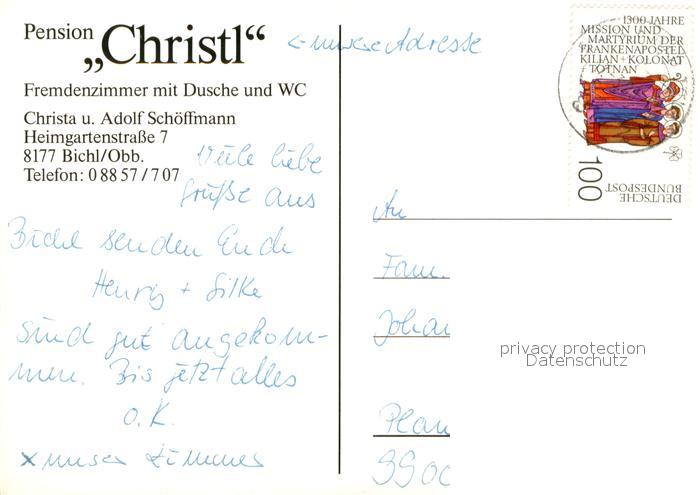 Pension
„Christl“
← unsere Adresse
Fremdenzimmer mit Dusche und WC
Christa u. Adolf Schöffmann
Heimgartenstraße 7
8177 Bichl/Obb.
Telefon: 0 88 57 / 7 07
Viele liebe
Grüße aus
Bichl senden Euch
Henry + Silke
Sind gut angekom-
men. Bis jetzt alles
o.K.
x unser Zimmer
1300 JAHRE
MISSION UND
MARTYRIUM DER
FRANKENAPOSTEL
KILIAN + KOLONAT
+ TOTNAN
100
DEUTSCHE
BUNDESPOST
An
Fam.
Johan
privacy protection
Datenschutz
Plan